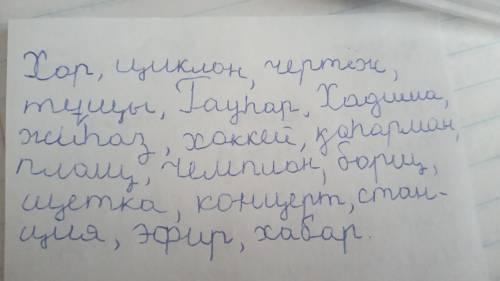 Хор, циклон, чертёж,
тұщы, Гауһар, Хадиша,
жиһаз, хоккей, қаһарман,
плащ, чемпион, борщ,
щетка, концерт, стан-
ция, эфир, хабар.